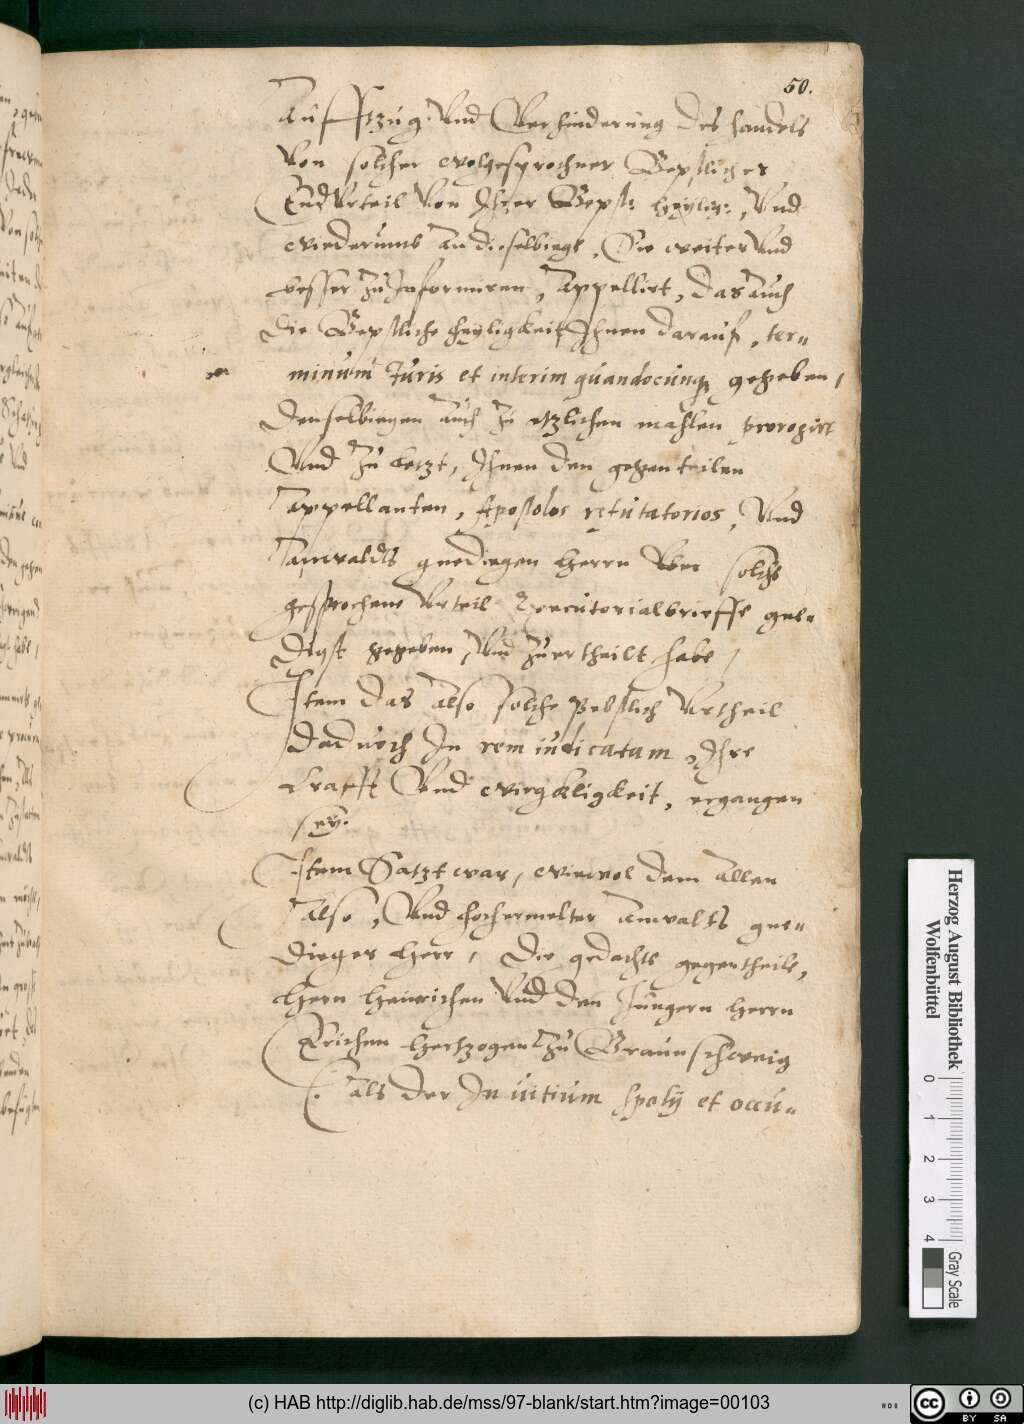 50.
Auffzug Und Verhinderung des handels
Von solcher wolgesprochner Bepstlicher
EndUrteil Von Ihrer Bepst: heylig:, Und
wiederumb An dieselbiege, Sie weiter Und
besser Zu Informiren, Appellirt, das Auch
die Bepstliche heyligkeit Ihnen darauf, ter=
minum Juris et interim quandocunq gegeben,
denselbiegen Auch Zu etzlichen mahlen prorogirt
Und Zu letzt, Ihnen den gegenteilen
Appellanten, Apostolos refutatorios, Und
Anwaldts gnedigen Herrn Uber solche
gesprochene Urteil Executorialbrieffe gne=
digst gegeben, Und Zuertheilt habe,
Item das Also solche Pebstlich Urtheil
dadurch In rem iudicatam, Ihre
Crafft Und wirgkligkeit, ergangen
sey.
Item Satzt war, wiewol dem Allen
Also, Und hochermelter Anwalts gne=
dieger Herr, die gedachte gegentheile,
Hern Heinrichen Und den Jungern Herrn
Erichen Hertzogen Zu Braunschweig
Als der In uitium spolij et occu=
Herzog August Bibliothek
Wolfenbüttel
0 1 2 3 4
Gray Scale
(c) HAB http://diglib.hab.de/mss/97-blank/start.htm?image=00103
cc BY SA